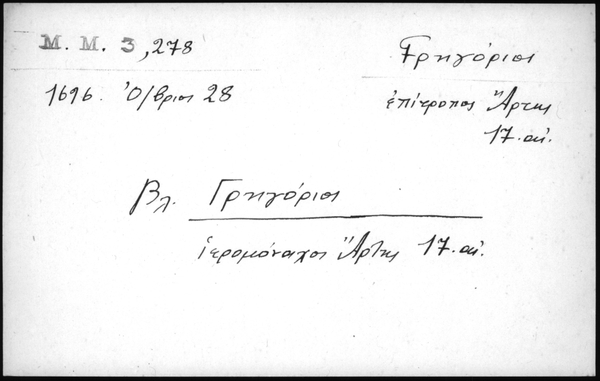 M. M. 3, 278
Γρηγόριος
1696. Ὀ/βριος 28
ἐπίτροπος Ἄρτης
17. αἰ.
Βλ. Γρηγόριος
ἱερομόναχος Ἄρτης 17. αἰ.